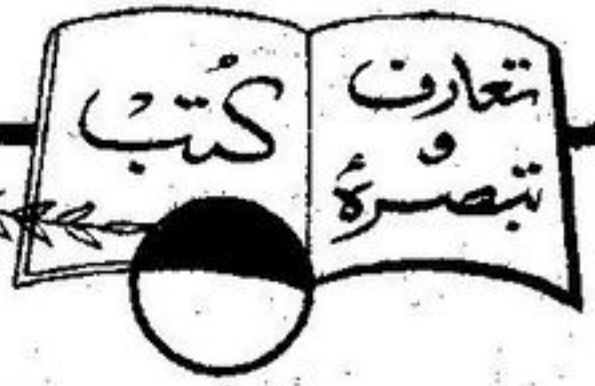 تعارف
و
تبصرۂ
کُتب